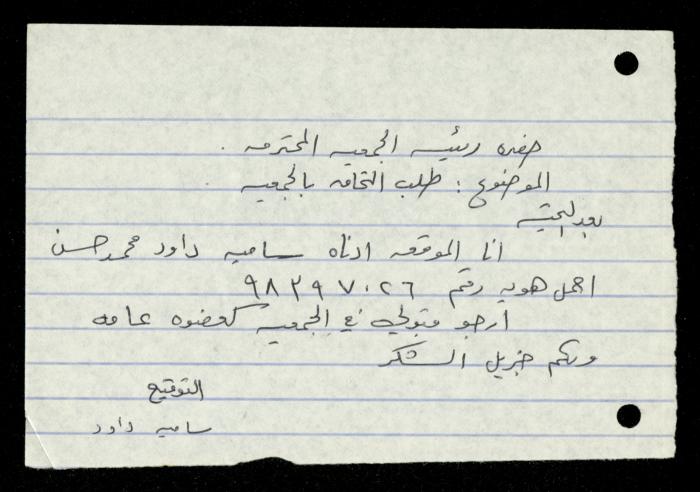 حضرة رئيسة الجمعية المحترمة .
الموضوع : طلب التحاق بالجمعية
بعد التحية
انا الموقعه ادناه ساميه داود محمد حسن
احمل هويه رقم ٩٨٣٩٧٠٢٦
أرجو قبولي في الجمعيه كعضوه عامه
ولكم جزيل الشكر
التوقيع
ساميه داود